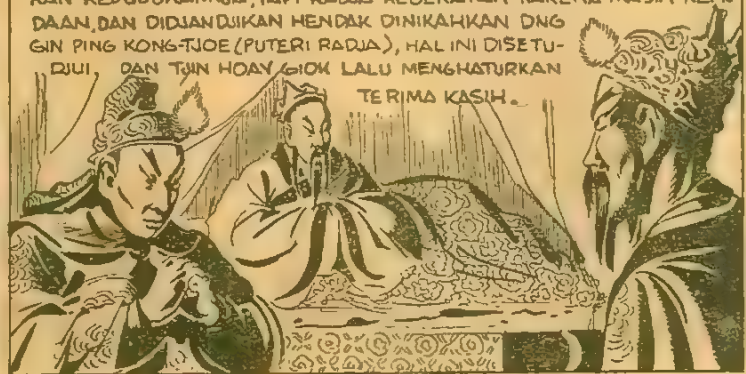 TAPI RADJA KEBERATAN KARENA MASIH
DAAN, DAN DIDJANDJIKAN HENDAK DINIKAHKAN DNG
GIN PING KONG-TJOE (PUTERI RADJA), HAL INI DISETU-
DJUI, DAN TJIN HOAY GIOK LALU MENGHATURKAN
TERIMA KASIH.